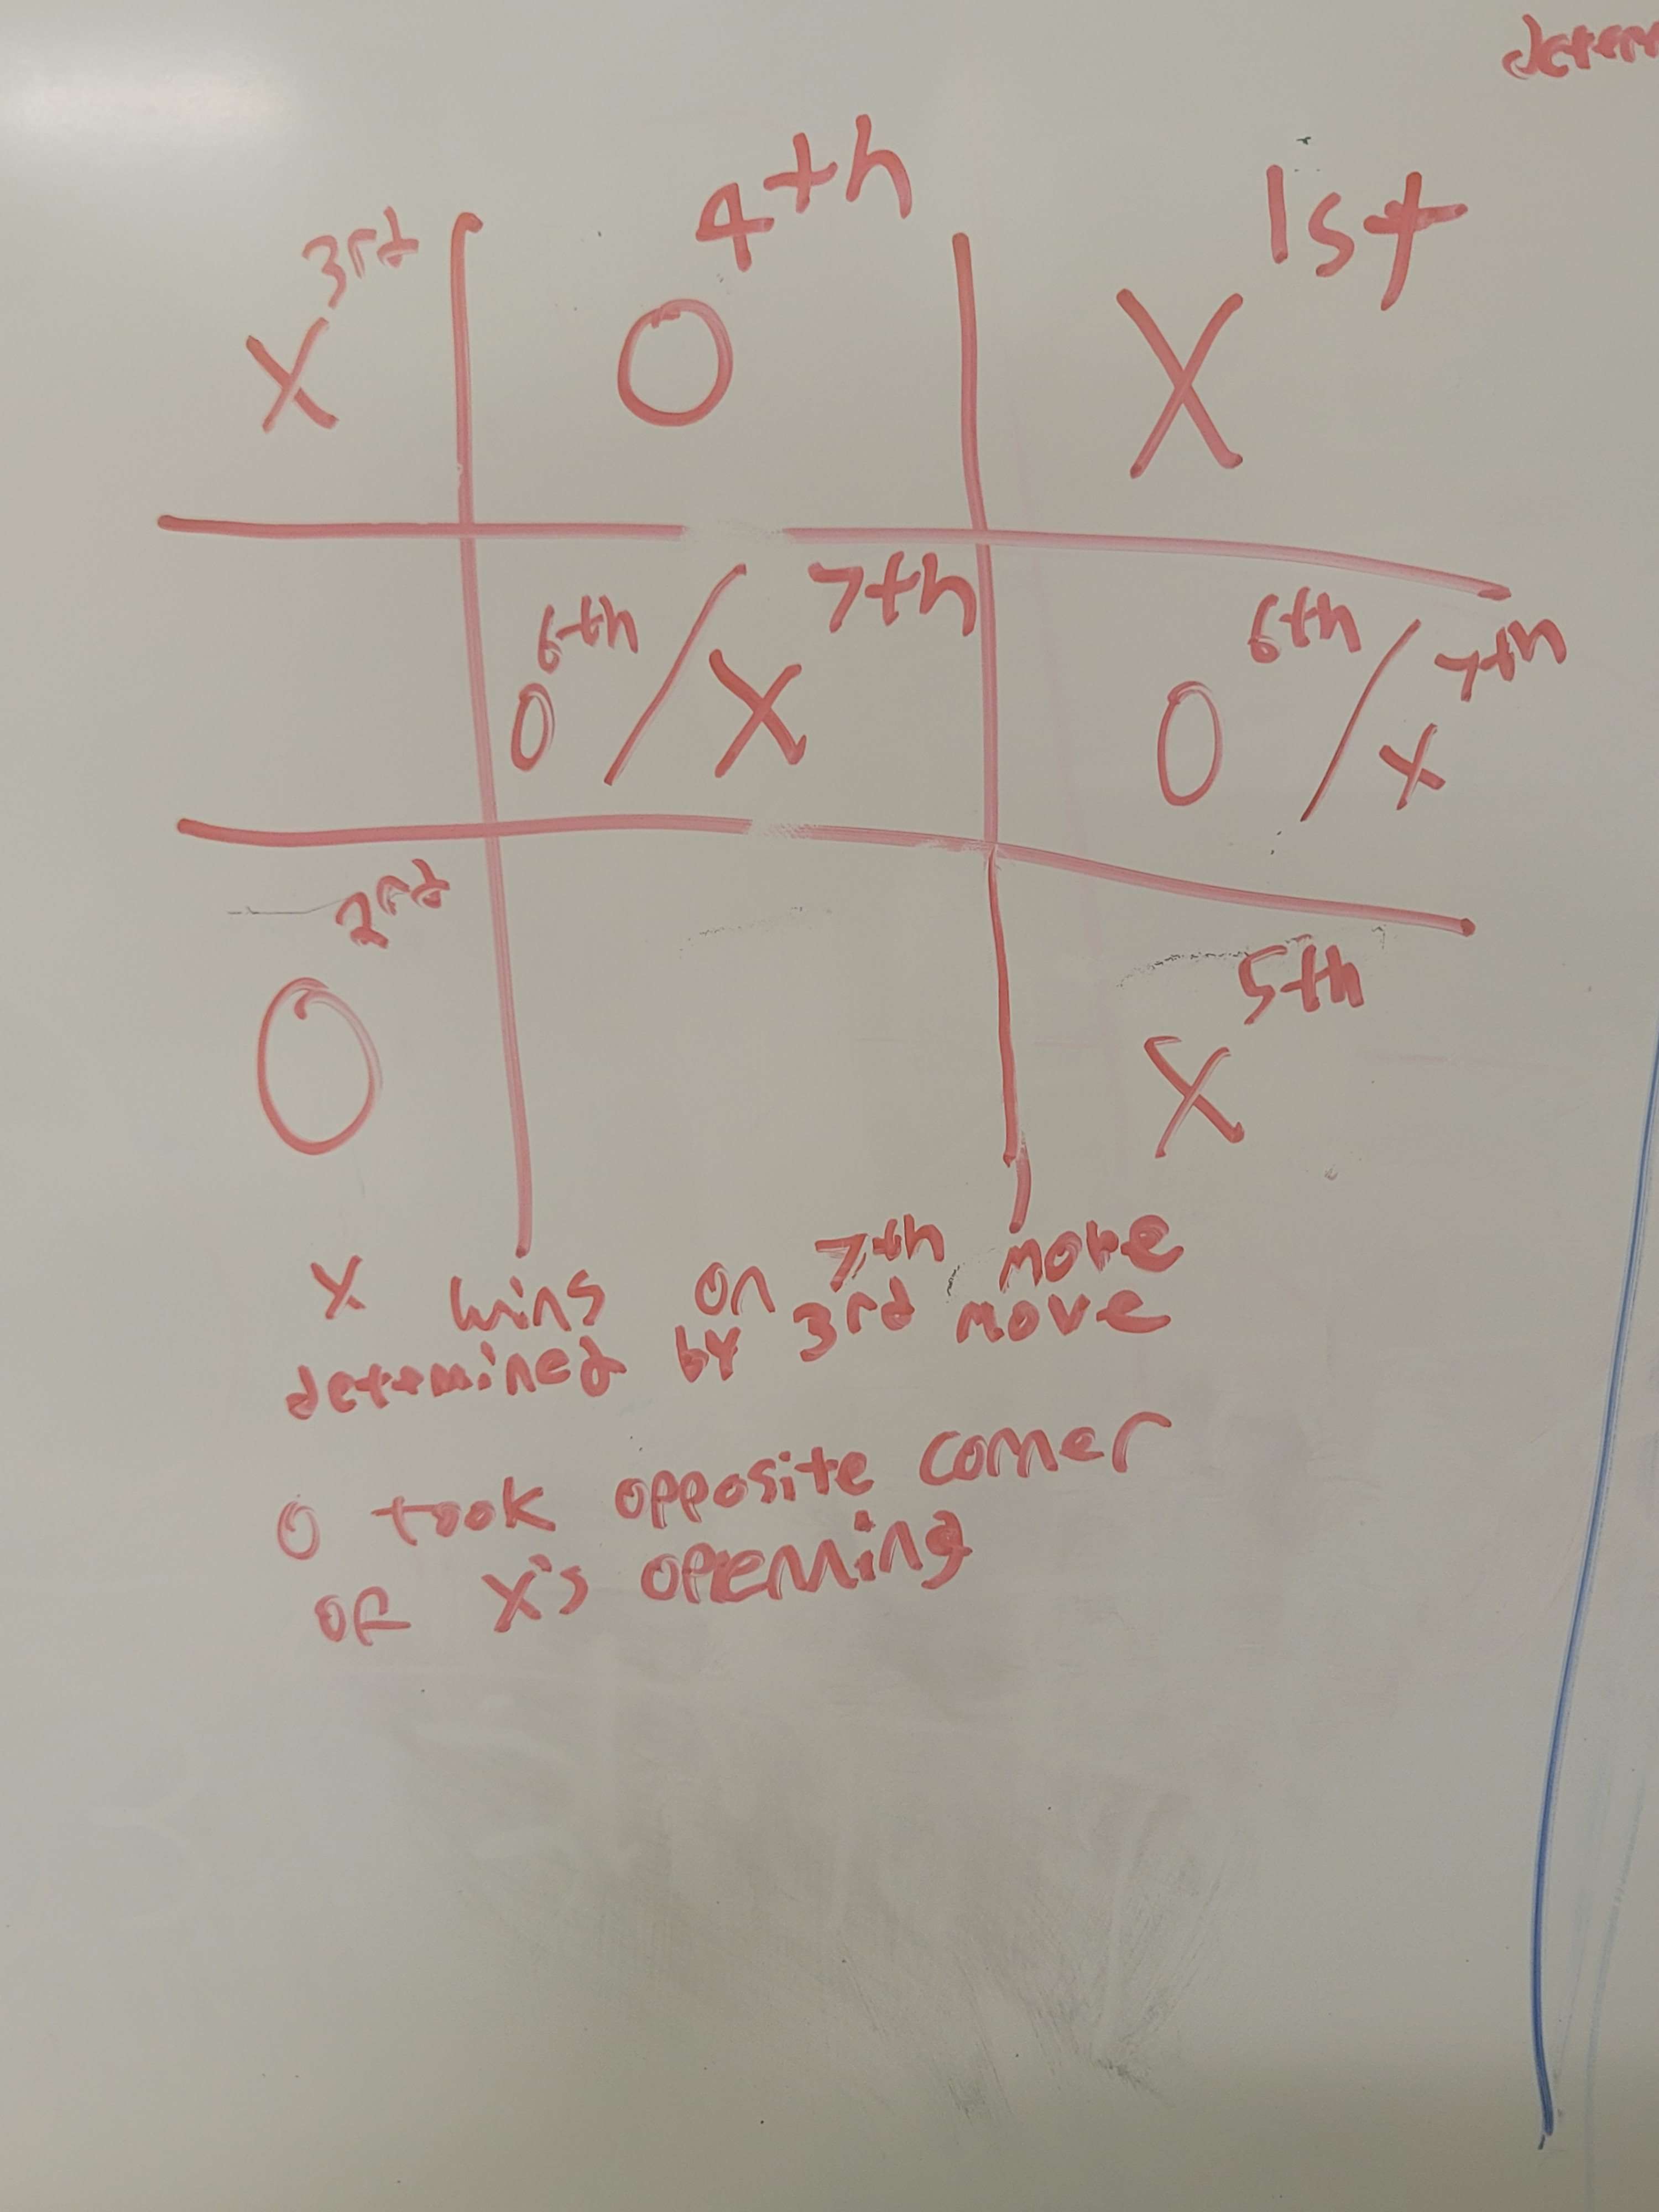 deter
3rd 4th 1st
X O X
6th / 7th 6th / 7th
O X O X
2rd 5th
O X
X wins on 7th move
determined by 3rd move
O took opposite corner
OF X's openning